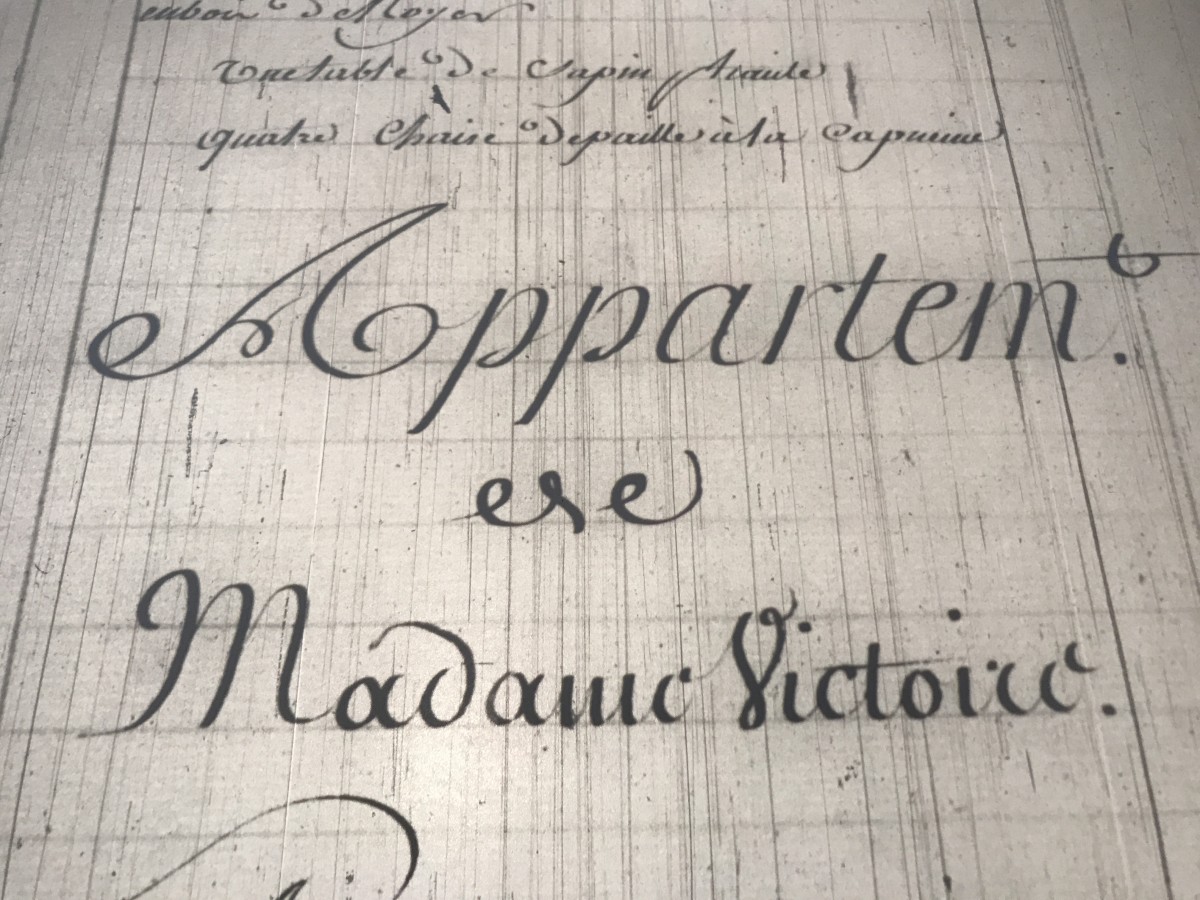 en bois de Noyer
Une table de Sapin
quatre Chaise de paille à la Capucine
Appartem.t
de
Madame Victoire.